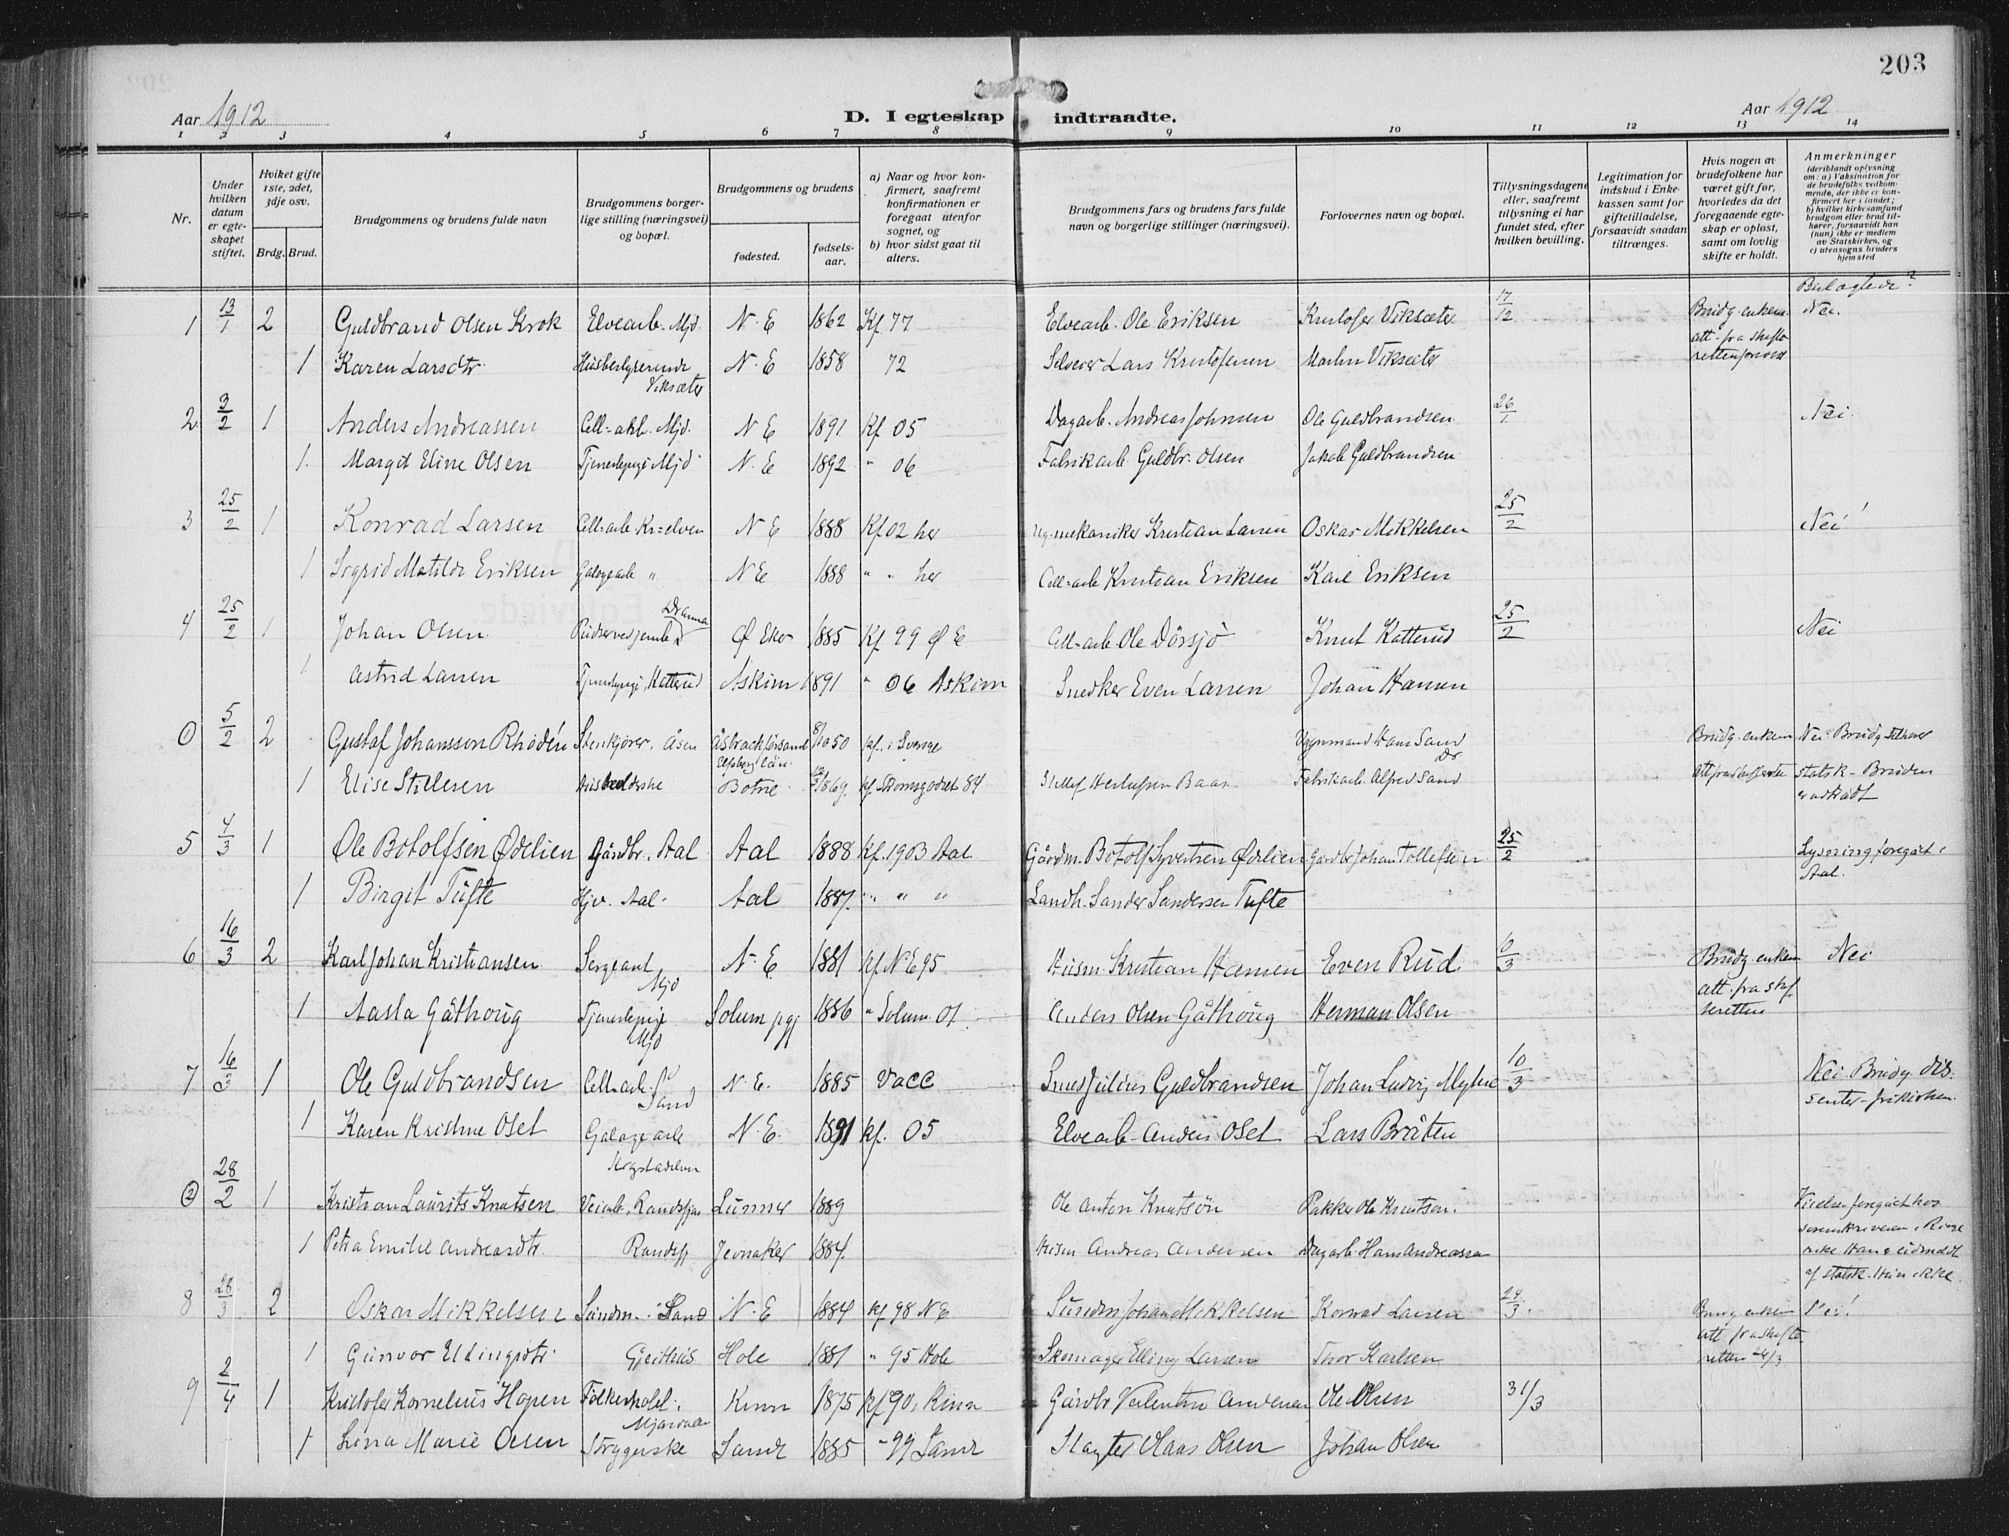 203
Aar 1912
D. I egteskap indtraadte.
Aar 1912
1 2 3 4 5 6 7 8 9 10 11 12 13 14
Nr.
Under hvilken datum er egteskapet stiftet.
Hviket gifte 1ste, 2det, 3dje osv.
Brdg. Brud.
Brudgommens og brudens fulde navn
Brudgommens borgerlige stilling (næringsvei) og bopæl.
Brudgommens og brudens
fødested.
fødselsaar.
a) Naar og hvor konfirmert, saafremt konfirmationen er foregaat utenfor sognet, og
b) hvor sidst gaat til alters.
Brudgommens fars og brudens fars fulde navn og borgerlige stillinger (næringsvei).
Forlovernes navn og bopæl.
Tillysningsdagene eller, saafremt tillysning ei har fundet sted, efter hvilken bevilling.
Legitimation for indskud i Enkekassen samt for giftetilladelse, forsaavidt saadan tiltrænges.
Hvis nogen av brudefolkene har været gift før, hvorledes da det foregaaende egteskap er opløst, samt om lovlig skifte er holdt.
Anmerkninger (deriblandt oplysning om: a) Vaksination for de brudefolks vedkommende, der ikke er konfirmert her i landet; b) hvilket kirkesamfund brudgom eller brud tilhører, forsaavidt han (hun) ikke er medlem av Statskirken, og c) utensogns bruders hjemsted
1 13/1 2 Guldbrand Olsen Krok Elvearb. Mjd. N. E 1862 Kf 77 Elvearb. Ole Eriksen Kristofer Viksæter 17/12 Brudg. enkem. att. fra skifteretten Nei.
1 Karen Larsdtr. Husbestyrerinde Viksæter N. E 1858 72 Selveier Lars Kristofersen Martin Viksæter
2 3/2 1 Anders Andreassen Cell-arb. Mjd. N E 1891 Kf 05 Dagarb. Andreas Johnsen Ole Guldbrandsen 26/1 Nei
1. Margit Eline Olsen Tjenestepige Mjd N. E 1892 " 06 Fabrikarb. Guldbr. Olsen Jakob Guldbrandsen
3 25/2 1 Konrad Larsen Cell-arb. Kr-elven N E 1888 Kf 02 her mekaniker Kristian Larsen Oskar Mikkelsen 25/2 Nei!
1 Sigrid Matilde Eriksen Galogearb " N E 1888 " " her Cell-arb Kristian Eriksen Karl Eriksen
4 25/2 1 Johan Olsen Dramm Ø Eker 1885 Kf 99 Ø E Cell-arb Ole Dörsjö Knut Katterud 25/2 Nei
1 Astrid Larsen Tjenestepige Katterud Askim 1891 " 06 Askim Snedker Even Larsen Johan Hansen
(1) 5/2 2 Gustaf Johansson Rhodén Stenkjører. Åsen Elfsborg län 50 kf. i Sverige Vognmand Hans Sand Brudg. enkem Nei Brudg tilhører
1 Elise Stillesen Husholderske Botne 1869. kf. Strömsgodset 84 Baas Fabrikarb. Alfred Sand statsk. Bruden er udtraadt
5 4/3 1 Ole Botolfsen Ødelien Gårdbr. Aal Aal 1888 Kf. 1903 Aal Gårdm. Botolf Syvertsen Ødelien Gårdbr Johan Tollefsen 25/2 Lysning foregået i Aal.
1 Birgit Tufte Hjv. Aal. Aal 1887. " " " Landh. Sander Sandersen Tufte
6 16/3 2 Karl Johan Kristiansen Sergeant Mjd N. E 1881 kf N E 95 Husm. Kristian Hansen Even Rud 10/3 Brudg. enkem att. fra skifteretten Nei
1 Aasta Gåthoug Tjenestepige Mjd Solum pgj 1886 " Solum 01. Anders Olsen Gåthoug Herman Olsen
7 16/3 1 Ole Guldbrandsen Cell-arb. Sand N. E. 1885 Vacc Smed Julius Guldbrandsen Johan Ludvig Myhre 10/3 Nei Brudg. dissenter-frikirken.
1 Karen Kristine Oset Galogearb Krogstadelven N. E. 1891 kf. 05 Elvearb. Anders Oset Lars Bråten
(2) 28/2 1 Kristian Laurits Knutsen Veiarb. Randsfjor Lunner 1889 Ole Anton Knutsøn Pakker Ole Knutsen. Vielsen foregået hos sorenskriveren i Ringerike Han er udmeldt af statsk. Hun ikke.
1 Petra Emilie Andreasdtr. Randsfj Jevnaker 1884. Husm Andreas Andersen Dagarb. Hans Andreassen
8 28/3 2 Oskar Mikkelsen Sand N. E 1884 kf 98 N E Johan Mikkelsen Konrad Larsen 24/3. Brudg enkem att. fra skifteretten Nei!
1 Gunvor Ellingsdtr. Geithus Hole 1881 " 95 Hole Skomager Elling Larsen Thor Karlsen
9 2/4 1 Kristofer Kornelius Hopen Folkeshotel. Mjøndalen Kinn 1875 kf 90. Kinn Gårdbr Valentin Andersen Ole Olsen 31/3
1 Lina Marie Olsen Strygerske Sande 1885 " 99 Sande Slagter Klaas Olsen Johan Olsen